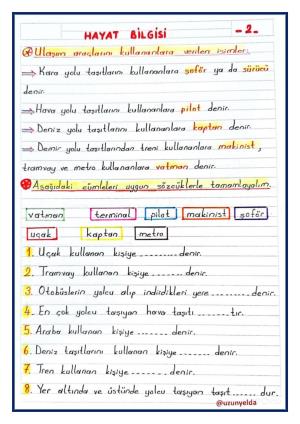 HAYAT BİLGİSİ
-2-
Ulaşım araçlarını kullananlara verilen isimler:
⇒ Kara yolu taşıtlarını kullananlara şoför ya da sürücü
denir.
⇒ Hava yolu taşıtlarını kullananlara pilot denir.
⇒ Deniz yolu taşıtlarını kullananlara kaptan denir.
⇒ Demir yolu taşıtlarından treni kullananlara makinist,
tramvay ve metro kullananlara vatman denir.
Aşağıdaki cümleleri uygun sözcüklerle tamamlayalım.
vatman terminal pilot makinist şoför
uçak kaptan metro
1. Uçak kullanan kişiye ......... denir.
2. Tramvay kullanan kişiye ......... denir.
3. Otobüslerin yolcu alıp indirdikleri yere ......... denir.
4. En çok yolcu taşıyan hava taşıtı ......... tır.
5. Araba kullanan kişiye ......... denir.
6. Deniz taşıtlarını kullanan kişiye ......... denir.
7. Tren kullanan kişiye ......... denir.
8. Yer altında ve üstünde yolcu taşıyan taşıt ...... dur.
@uzunyelda